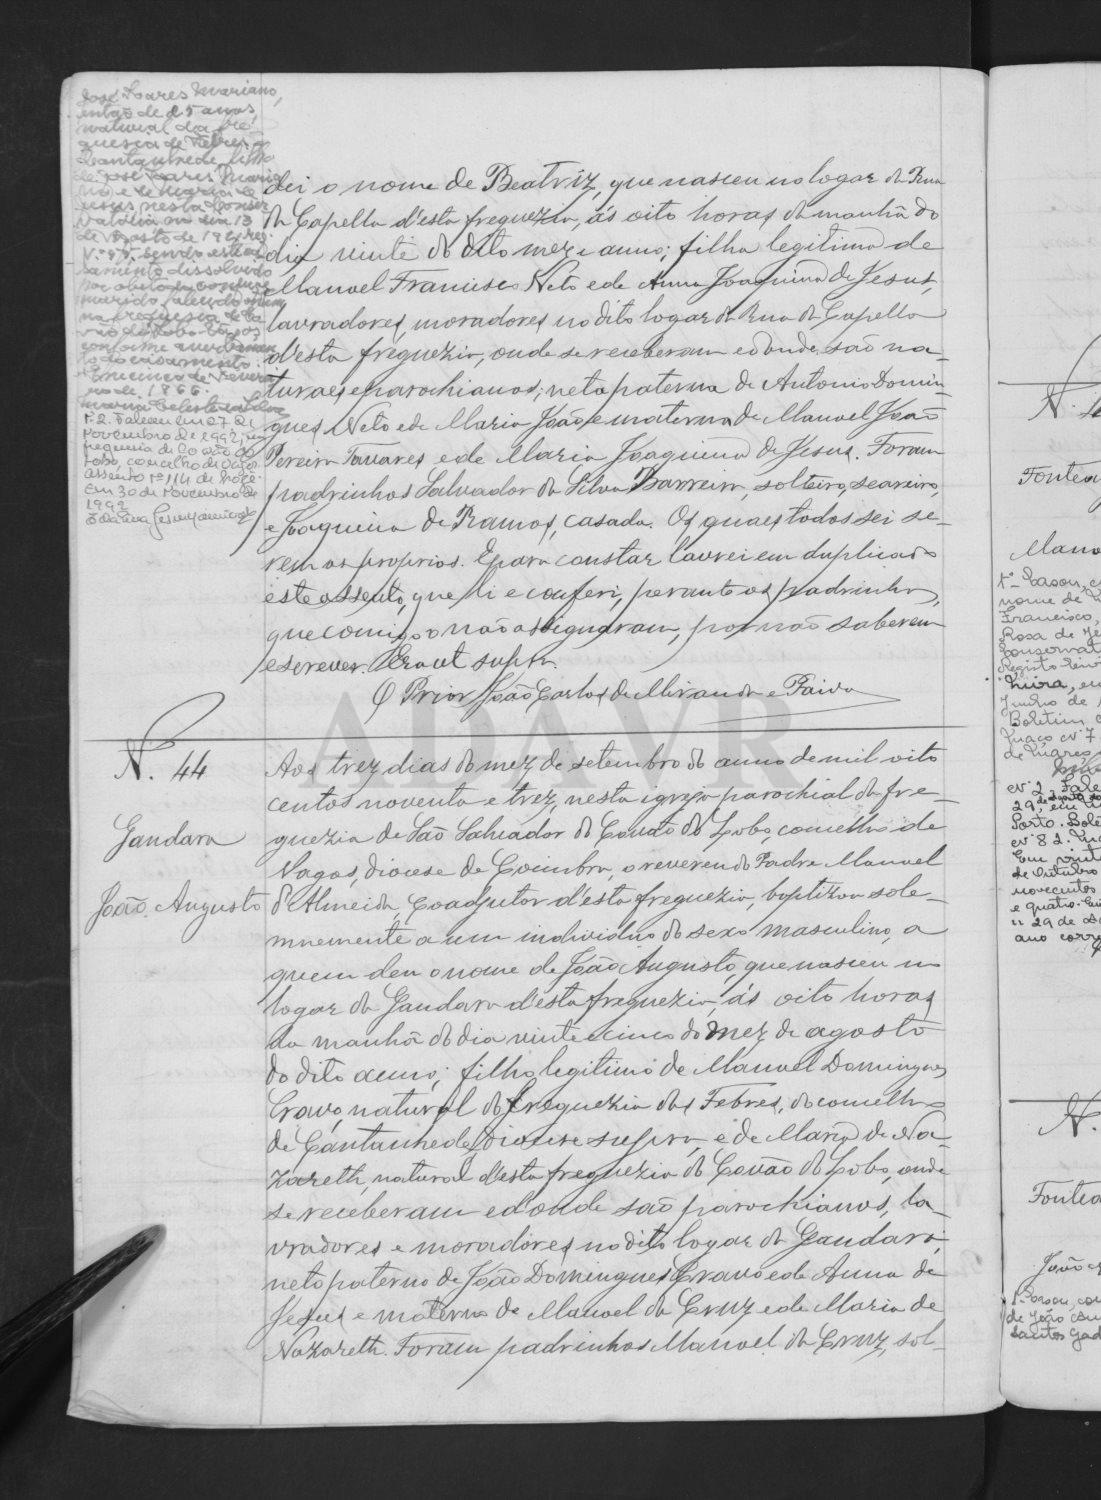 José Soares Mariano,
então de 25 anos,
natural da fre
guesia de Febres
Cantanhede, filho
de José Soares Maria
no e de Maria de
Jesus, nesta Conser
vatória no dia 13
de Agosto de 1921, reg.
sendo este ca
samento dissolvido
por óbito do conjuge
marido, falecido
na freguesia de Co
vão do Lobo-Vagos
conforme averbamen
to ao casamento.
Em cinco de Feverei
ro de 1966.
Maria Celeste da Silva
Nº 2. Faleceu em 27 de
Novembro de 1992, na
freguesia de Covão do
Lobo, concelho de Vagos.
Assento nº 114 de hoje.
Em 30 de Novembro de
1992
dei o nome de Beatriz, que nasceu no logar da Rua
da Capella d'esta freguezia, ás oito horas da manhã do
dia vinte do dito mez e anno; filha legitima de
Manoel Francisco Neto e de Anna Joaquina de Jesus,
lavradores, moradores no dito logar da Rua da Capella
d'esta freguezia, onde se receberam e d'onde são na-
turaes e parochianos; neta paterna de Antonio Domin
gues Neto e de Maria João, e materna de Manoel João
Pereira Tavares e de Maria Joaquina de Jesus. Foram
padrinhos Salvador da Silva Barreira, solteiro, seareiro,
e Joaquina de Ramos, casada. Os quaes todos sei se-
rem os proprios. E para constar lavrei em duplicado
este assento, que li e conferi, perante os padrinhos,
que comigo o não assignaram, por não saberem
escrever. Era ut supra.
O Prior João Carlos de Miranda e Paiva
ADAVR
N. 44
Gandara
João Augusto
Aos trez dias do mez de setembro do anno de mil oito
centos noventa e trez, nesta igreja parochial da fre-
guezia de São Salvador do Covão do Lobo, concelho de
Vagos, diocese de Coimbra, o reverendo Padre Manoel
d'Almeida, Coadjutor d'esta freguezia, baptizou sole-
mnemente a um individuo do sexo masculino, a
quem deu o nome de João Augusto, que nasceu no
logar da Gandara d'esta freguezia, ás oito horas
da manhã do dia vinte e cinco do mez de agosto
do dito anno; filho legitimo de Manoel Domingues
Cravo, natural da freguezia das Febres, do concelho
de Cantanhede, diocese supra, e de Maria de Na-
zareth, natural d'esta freguezia do Covão do Lobo, onde
se receberam e d'onde são parochianos, la-
vradores e moradores no dito logar da Gandara;
neto paterno de João Domingues Cravo e de Anna de
Jesus e materno de Manoel da Cruz e de Maria de
Nazareth. Foram padrinhos Manoel da Cruz, sol-
N.
Fontea
Mano
Nº 1- Casou, c
nome de
Francisco,
Rosa de Je
Conservat
Registo Civi
Mira, em
Junho de
Boletim
Maço nº 7
de Março
Nº 2. Fale
29, de Agosto
Porto. Bole
nº 82.
Em vinte
de Outubro
novecentos
e quatro.
29 de
ano corre
N.
Fontea
João
Casou, co
de João
Santos Gad